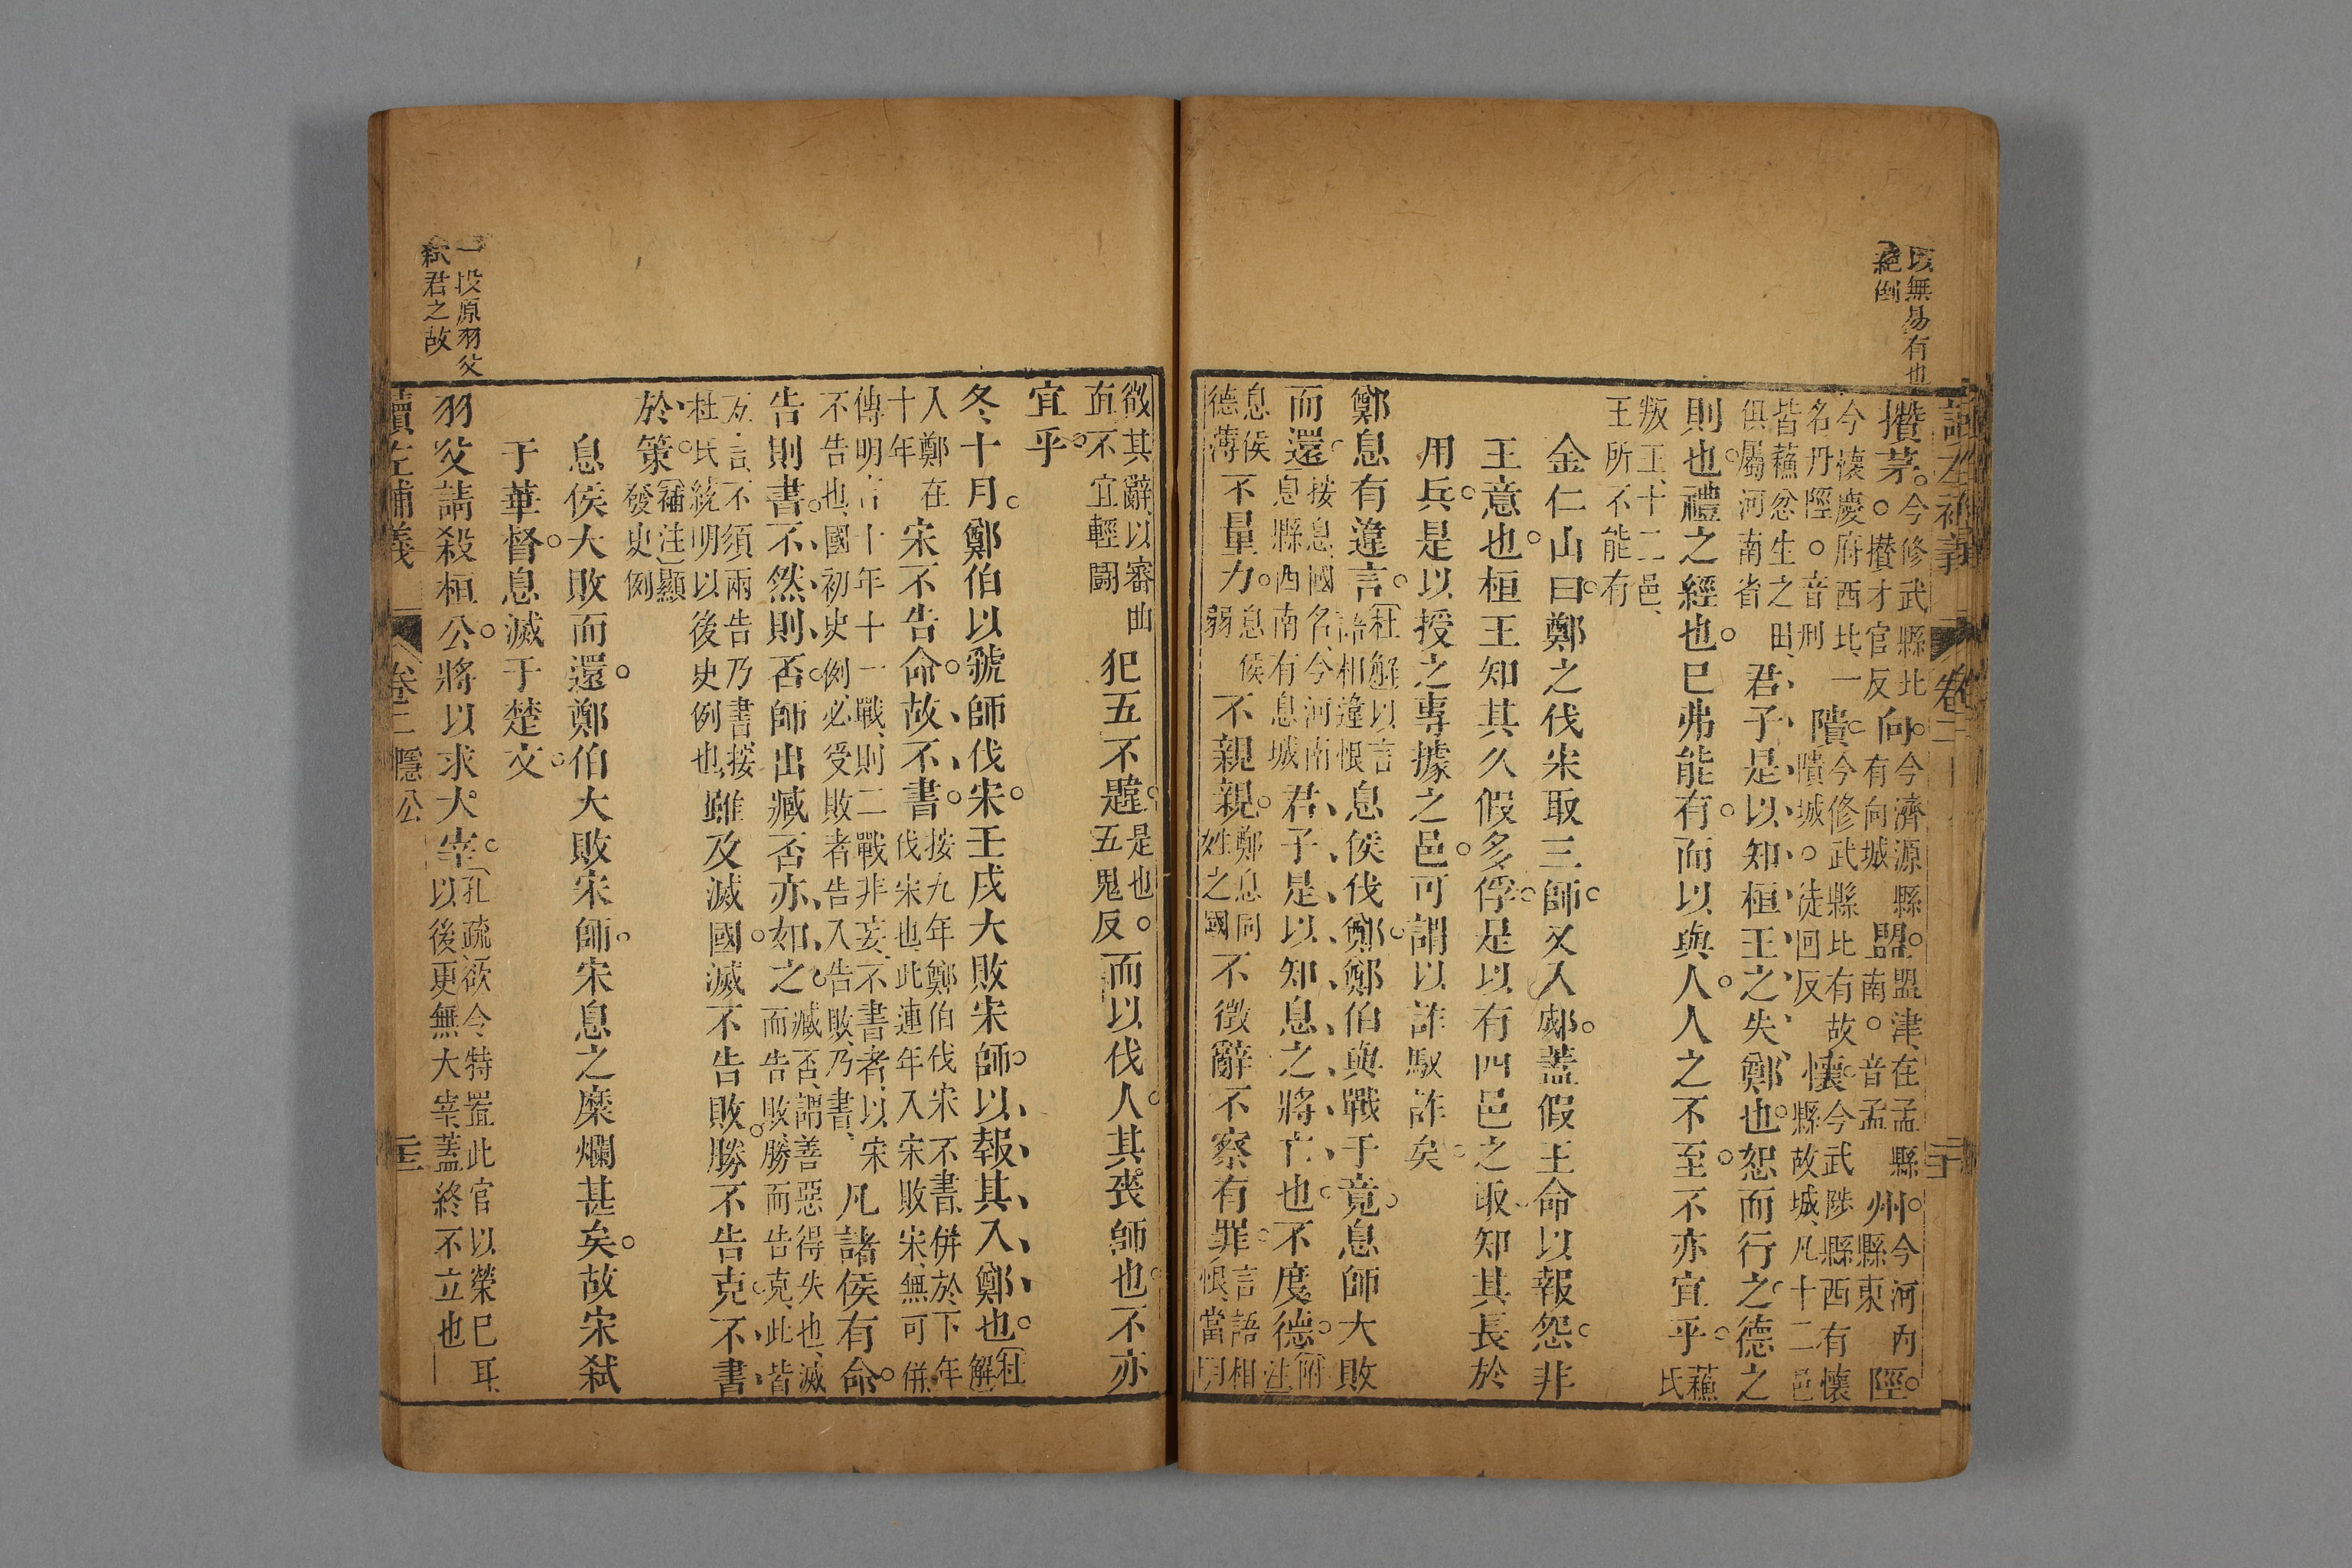 以無易有也
絕倒
讀左補義 卷二 二十
攢茅。今修武縣北○攢才官反向。今濟源縣有向城盟。盟津、在孟縣南○音孟州。今河內縣東陘。
今懷慶府西北、一名丹陘○音刑隤。今修武縣北有故隤城○徒回反懷。今武陟縣西有懷縣故城、凡十二邑
皆蘇忿生之田、俱屬河南省君子是以知桓王之失鄭也。恕而行之德之
則也。禮之經也。已弗能有。而以與人。人之不至。不亦宜乎。蘇氏
叛王、十二邑、王所不能有
金仁山曰。鄭之伐宋取三師。又入郕。蓋假王命以報怨。非
王意也。桓王知其久假多俘。是以有四邑之取知其長於
用兵。是以授之專據之邑。可謂以詐馭詐矣。
鄭息有違言。杜解以言語相違恨息侯伐鄭。鄭伯與戰于竟。息師大敗
而還。按息國名、今河南息縣西南有息城君子是以知息之將亡也。不度德。附注
息侯德薄不量力。息侯弱不親親。鄭息同姓之國不徵辭不察有罪。言語相恨、當明
徵其辭、以審曲直、不宜輕鬬犯五不韙。是也。五鬼反而以伐人。其喪師也。不亦
宜乎。
冬十月。鄭伯以虢師伐宋。壬戌大敗宋師。以報其入鄭也。杜解
入鄭在十年宋不告命。故不書。按九年鄭伯伐宋不書、併於下年伐宋也、此連年入宋敗宋、無可併、
傳明言十年十一戰、則二戰非妄、不書者、以宋不告也、國初史例必受敗者告入告敗、乃書、凡諸侯有命。
告則書。不然則否。師出臧否亦如之。臧否、謂善惡得失也、滅而告敗、勝而告克、此皆
互言、不須兩告乃書、按杜氏統明以後史例也、雖及滅國。滅不告敗。勝不告克。不書
於策。補注顯發史例
息侯大敗而還。鄭伯大敗宋師。宋息之糜爛甚矣。故宋弒
于華督。息滅于楚文。
羽父請殺桓公。將以求大宰。孔疏欲令特置此官以榮已耳、以後更無大宰、蓋終不立也
讀左補義 卷二 隱公 二十一
一段原羽父
弒君之故